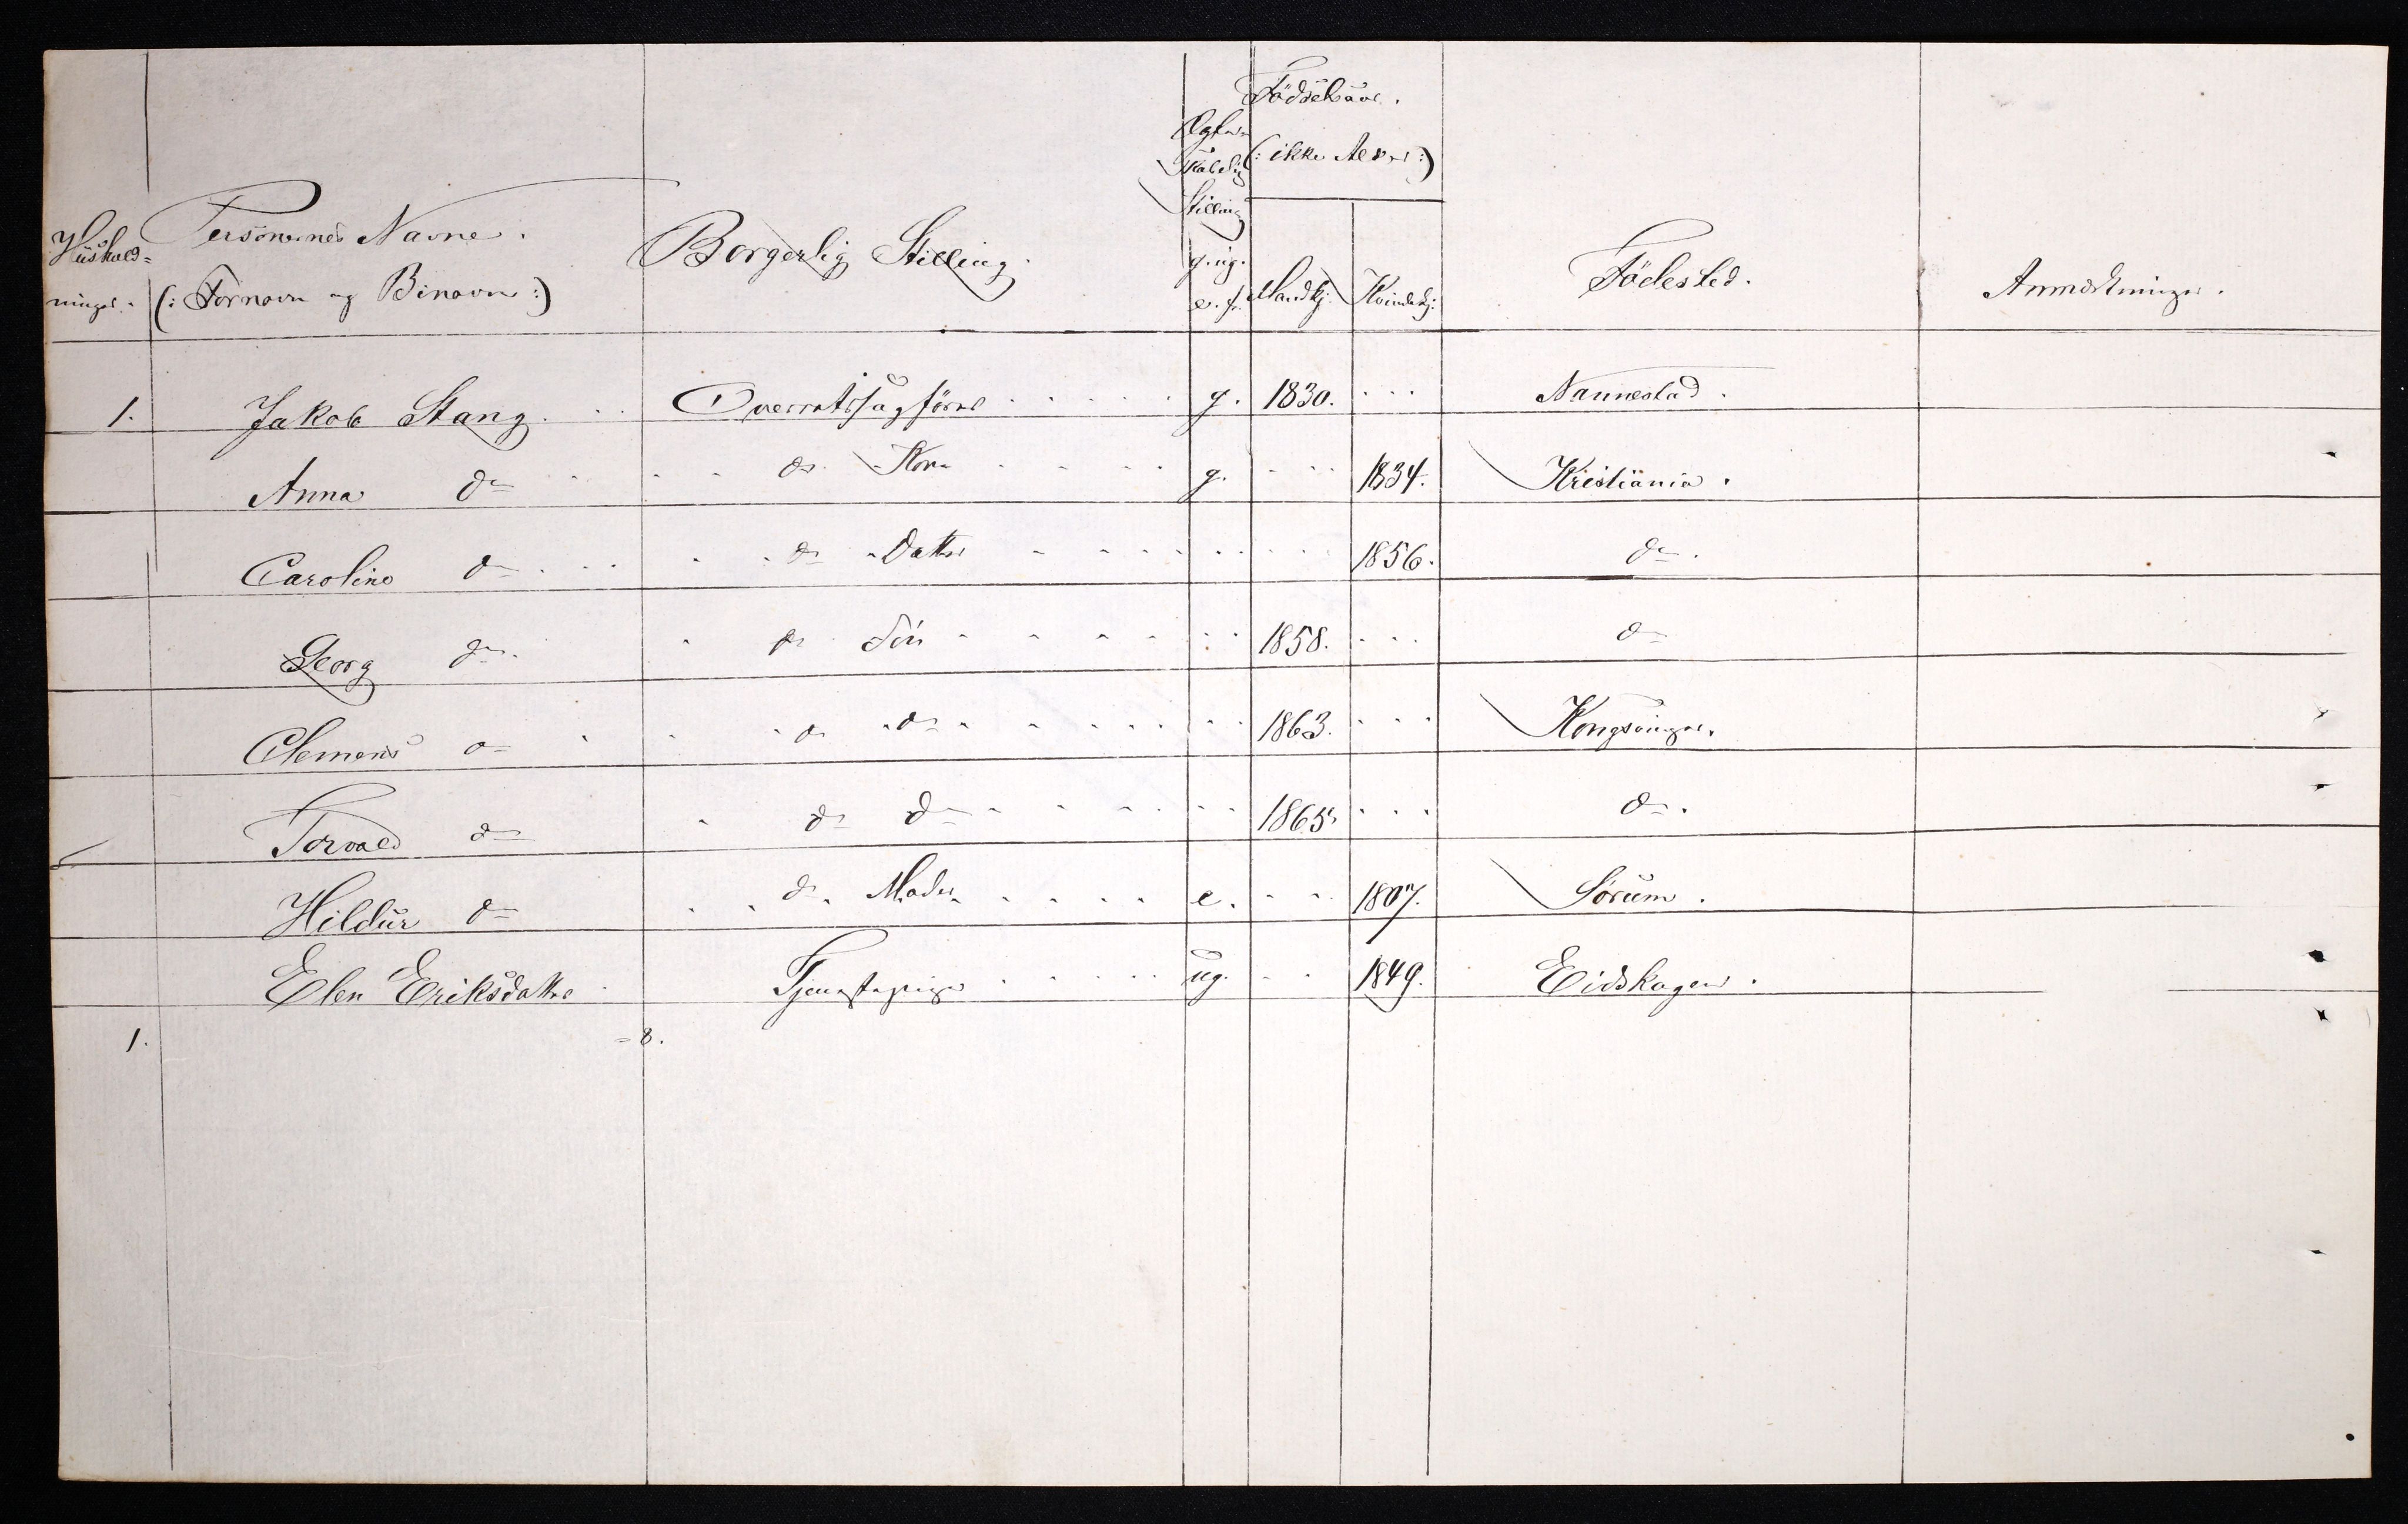 Fødselsaar.
Ægte-
skabelig (: ikke Alder :)
Stilling
Hüshold- Personernes Navne.
Borgerlig Stilling.
g. ug.
ninger. (: Fornavn og Binavn :) e. f. Mandkj. Kvindekj. Fødested. Anmærkninger.
1. Jakob Stang. Overretssagfører g. 1830. Nannestad.
Anna do do Kone g. 1834. Kristiänia.
Caroline do do Datter 1856. do.
Georg do. do Søn 1858. do
Clemens do do do 1863. Kongsvinger.
Torvald do do do 1865. do.
Hildür do do Moder e. 1807. Sørüm.
Elen Eriksdatter Tjenestepige üg. 1849. Eidskogen.
1. =8.